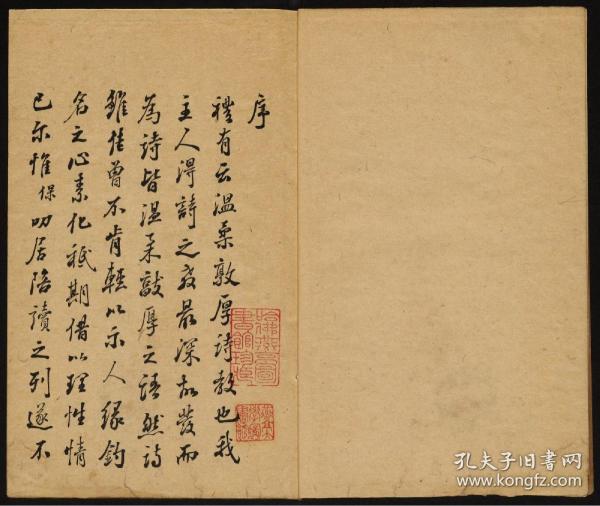 序
禮有云溫柔敦厚詩教也我
主人得詩之教最深故發而
為詩皆溫柔敦厚之語然詩
雖佳曾不肯輕以示人緣釣
名之心素化祇期借以理性情
已尔惟保叨居陪讀之列遂不
孔夫子旧书网
www.kongfz.com